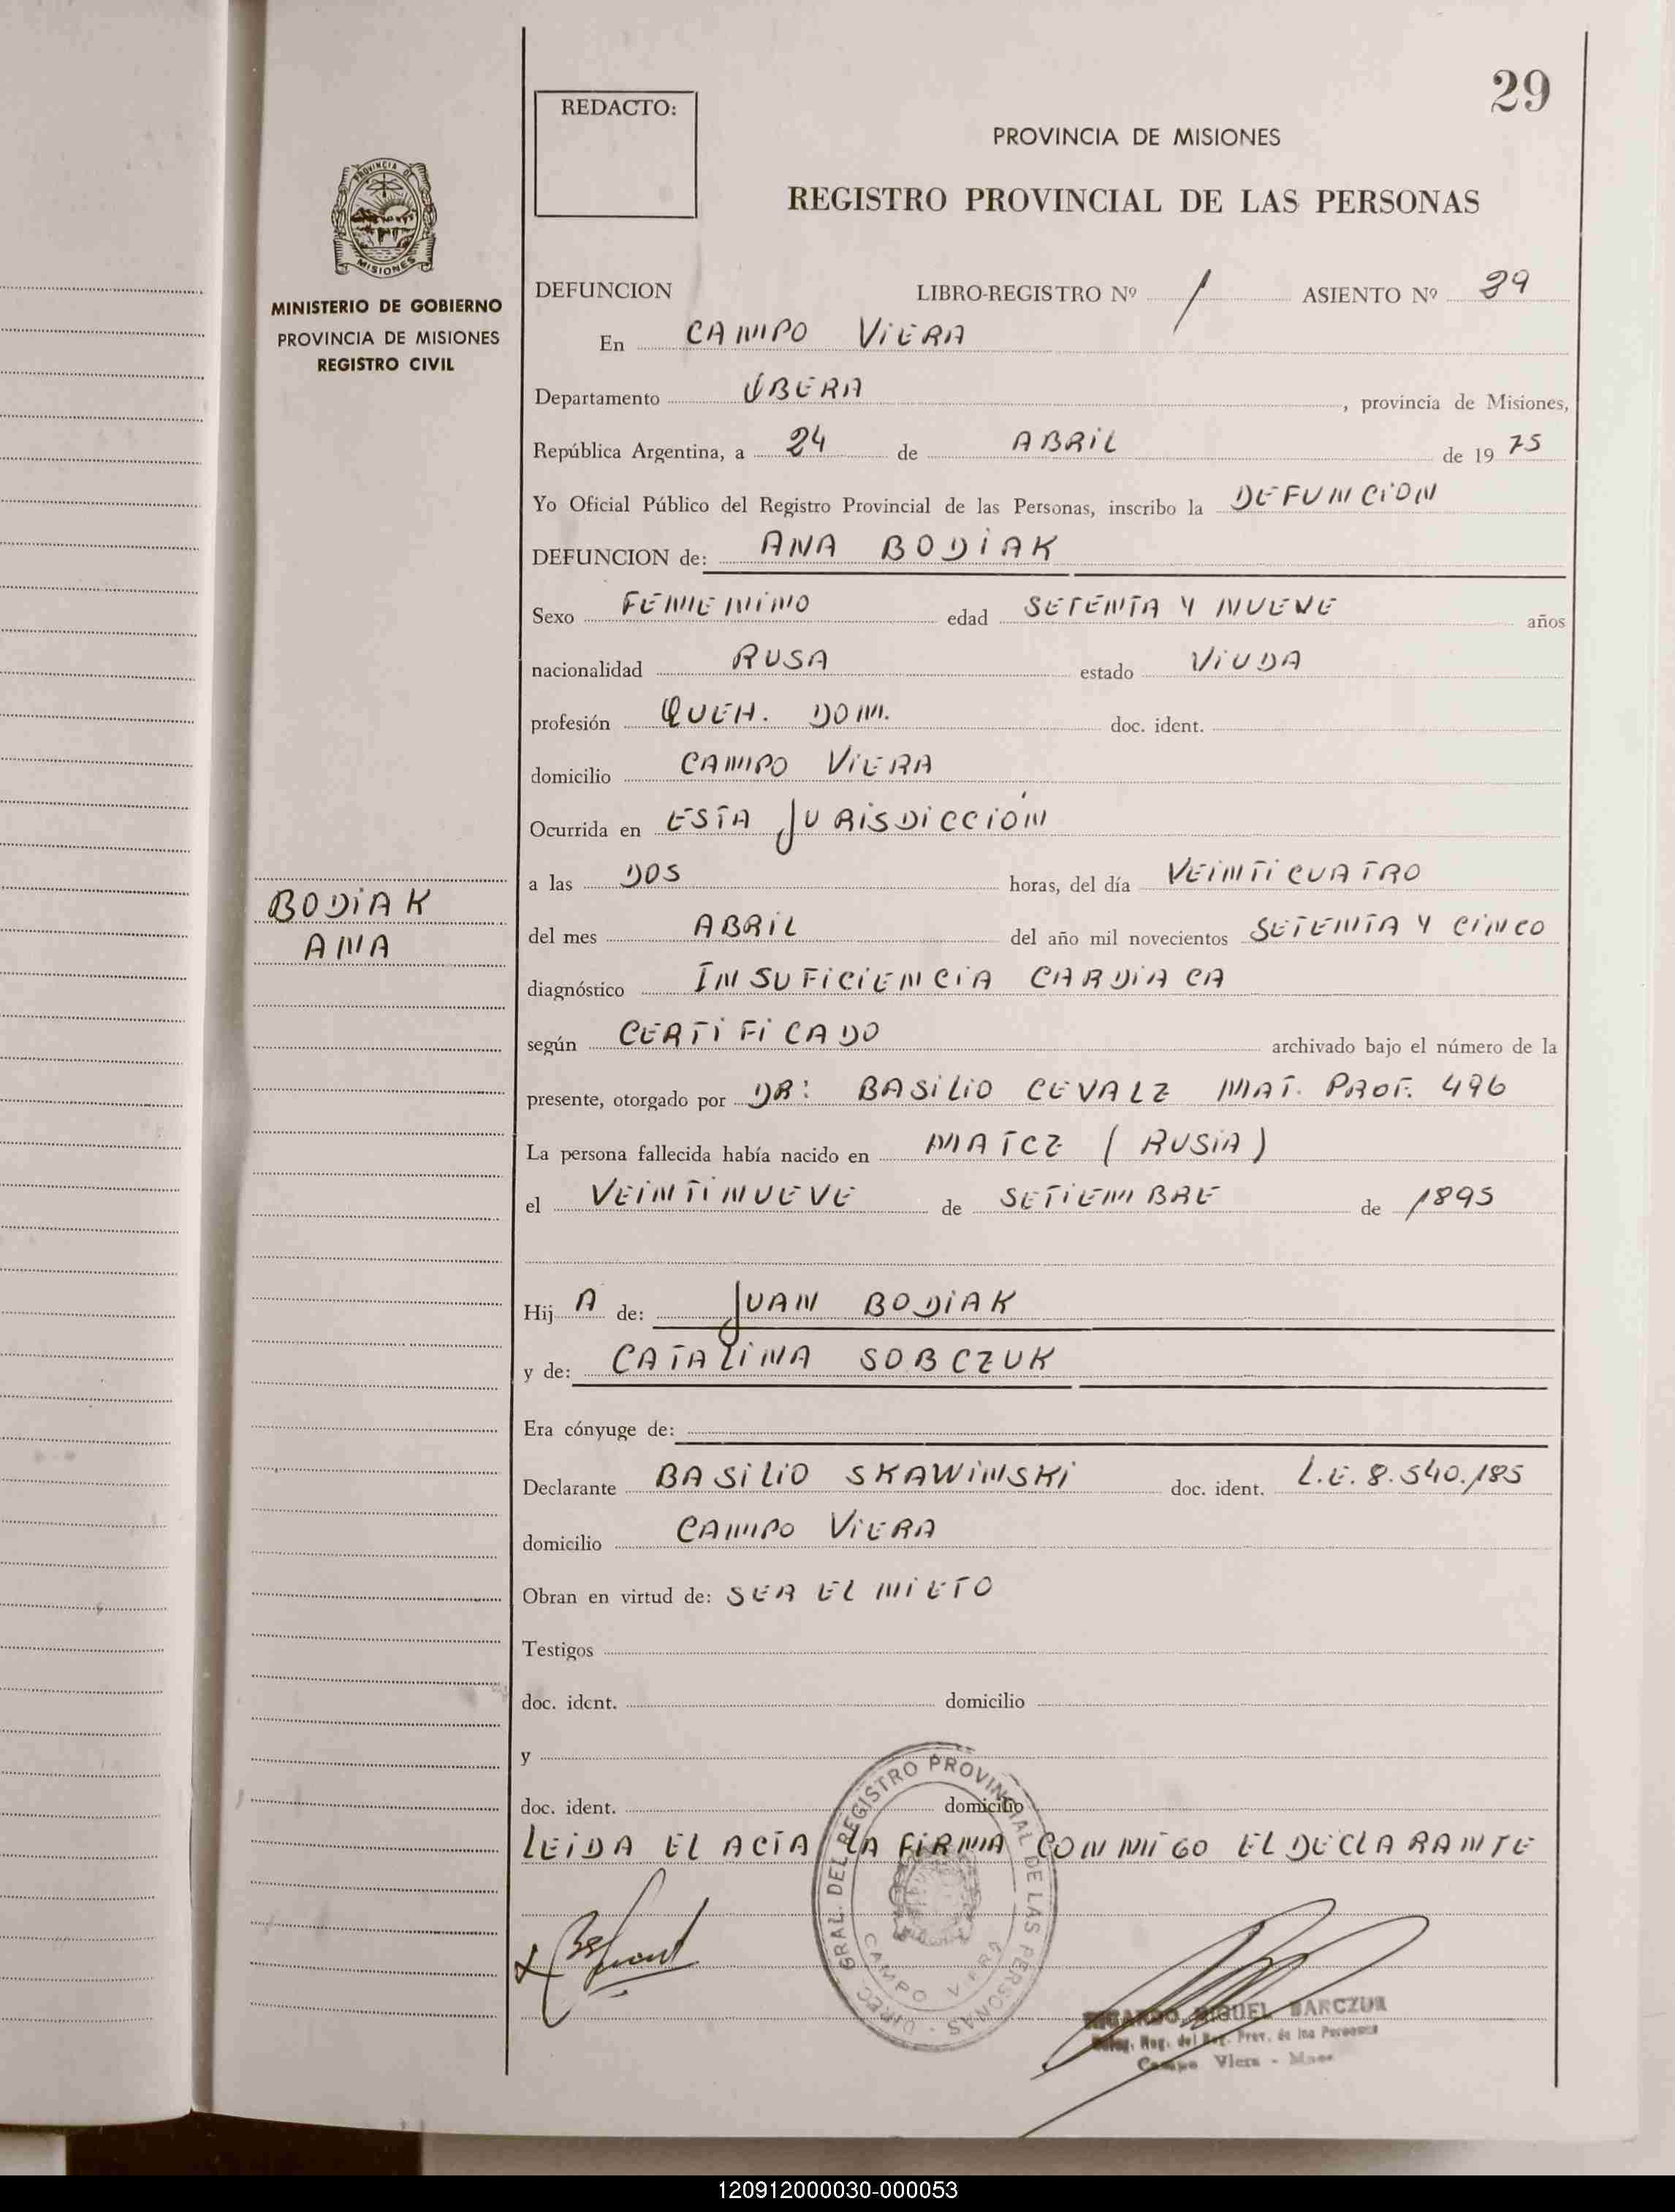 29
REDACTO:
PROVINCIA DE MISIONES
REGISTRO PROVINCIAL DE LAS PERSONAS
PROVINCIA DE
MISIONES
MINISTERIO DE GOBIERNO
PROVINCIA DE MISIONES
REGISTRO CIVIL
DEFUNCION LIBRO-REGISTRO Nº 1 ASIENTO Nº 29
En CAMPO VIERA
Departamento OBERA, provincia de Misiones,
República Argentina, a 24 de ABRIL de 1975
Yo Oficial Público del Registro Provincial de las Personas, inscribo la DEFUNCION
DEFUNCION de: ANA BODIAK
Sexo FEMENINO edad SETENTA Y NUEVE años
nacionalidad RUSA estado VIUDA
profesión QUEH. DOM. doc. ident.
domicilio CAMPO VIERA
Ocurrida en ESTA JURISDICCIÓN
a las DOS horas, del día VEINTICUATRO
BODIAK
ANA
del mes ABRIL del año mil novecientos SETENTA Y CINCO
diagnóstico INSUFICIENCIA CARDIACA
según CERTIFICADO archivado bajo el número de la
presente, otorgado por DR: BASILIO CEVALZ MAT. PROF. 496
La persona fallecida había nacido en MATCZ (RUSIA)
el VEINTINUEVE de SETIEMBRE de 1895
Hij A de: JUAN BODIAK
y de: CATALINA SOBCZUK
Era cónyuge de:
Declarante BASILIO SKAWINSKI doc. ident. L.E. 8.540.185
domicilio CAMPO VIERA
Obran en virtud de: SER EL NIETO
Testigos
doc. ident. domicilio
y
doc. ident. domicilio
LEIDA EL ACTA LA FIRMA CONMIGO EL DECLARANTE
DIREC. GRAL. DEL REGISTRO PROVINCIAL DE LAS PERSONAS
CAMPO VIERA
RICARDO MIGUEL BARCZUK
Reg. del Reg. Prov. de las Personas
Campo Viera - Mnes
120912000030-000053